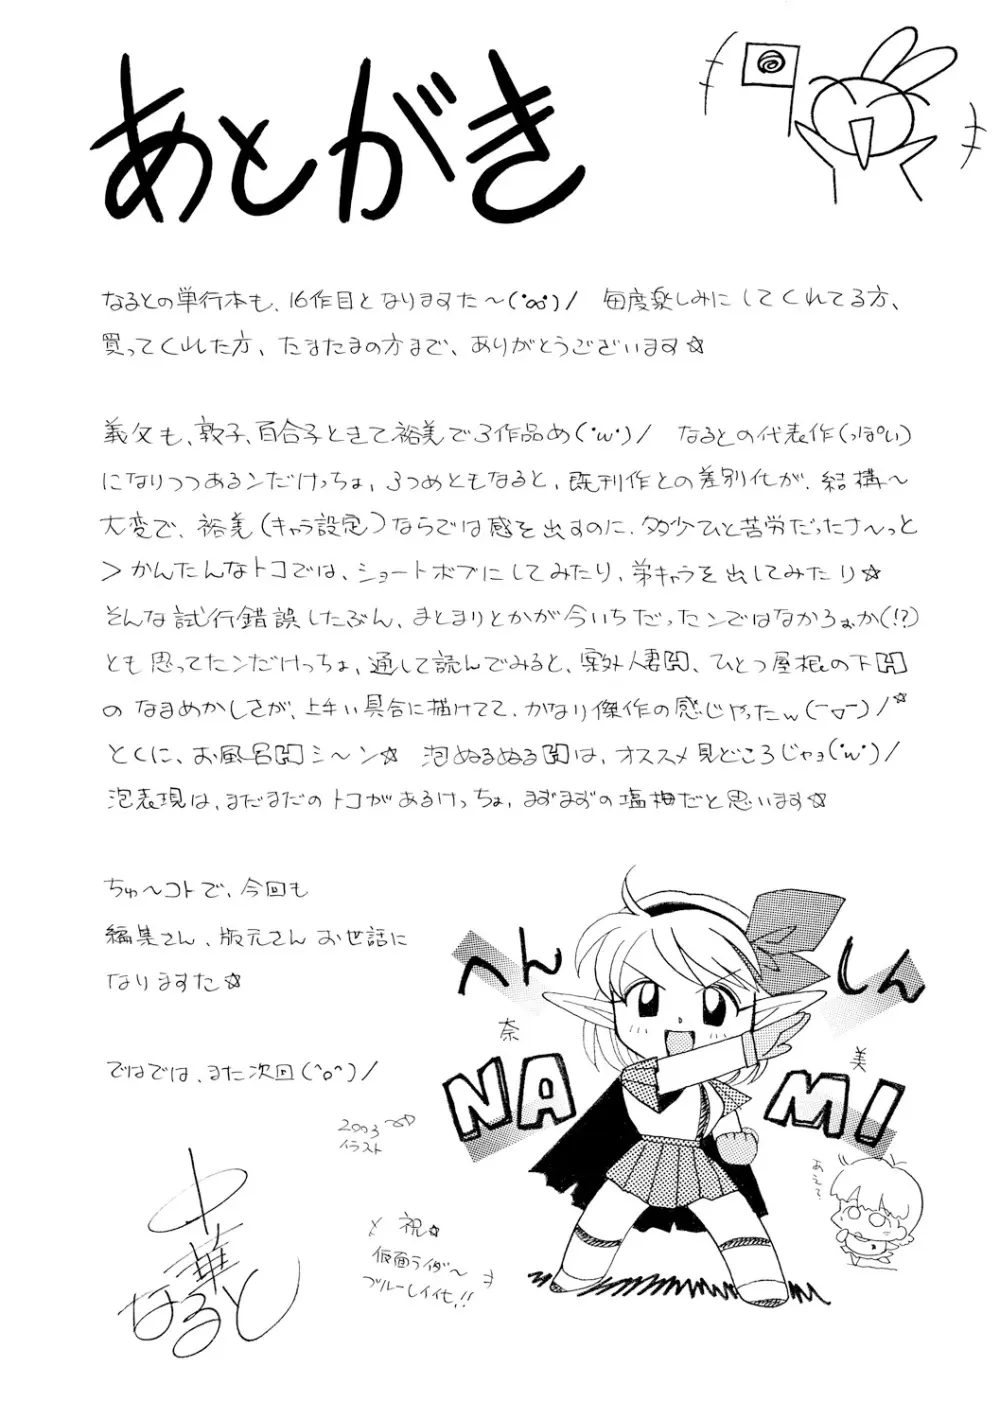 あとがき
なるとの単行本も、16作目となりますた～(°∞°)/ 毎度楽しみにしてくれてる方、
買ってくれた方、たまたまの方まで、ありがとうございます☆
義父も、敦子、百合子ときて裕美で3作品め(･w･)/ なるとの代表作(っぽい)
になりつつあるンだけっちょ、3つめともなると、既刊作との差別化が、結構～
大変で、裕美(キャラ設定)ならでは感を出すのに、多少ひと苦労だったナ～っと
＞かんたんなトコでは、ショートボブにしてみたり、弟キャラを出してみたり☆
そんな試行錯誤したぶん、まとまりとかが今いちだったンではなかろぉか(!?)
とも思ってたンだけっちょ、通して読んでみると、案外人妻H、ひとつ屋根の下H
のなまめかしさが、上手い具合に描けてて、かなり傑作の感じやったw(￣▽￣)/☆
とくに、お風呂Hシ～ン☆ 泡ぬるぬるHは、オススメ見どころじゃョ(･w･)/
泡表現は、まだまだのトコがあるけっちょ、まずまずの塩梅だと思います☆
ちゅ～コトで、今回も
編集さん、版元さんお世話に
なりますた☆
ではでは、また次回(^o^)/
2003
イラスト
中華
なると
へん
しん
奈
美
NA
MI
あえて
祝☆
仮面ライダ～
ブルーレイ化!!